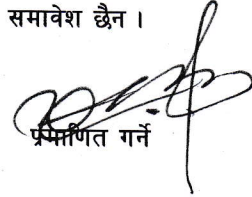 समावेश छैन ।
प्रमाणित गर्ने